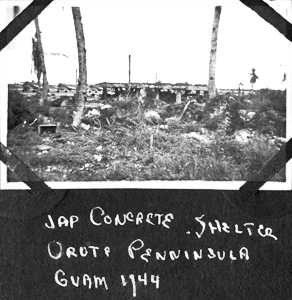 JAP CONCRETE SHELTER
OROTE PENNINSULA
GUAM 1944